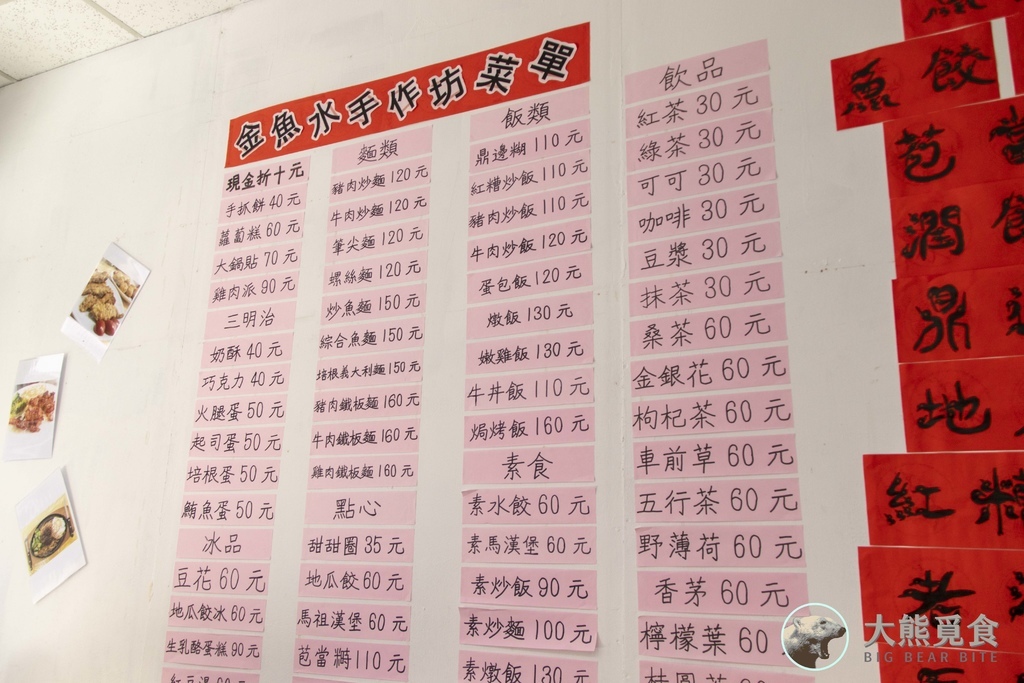 金魚水手作坊菜單
現金折十元
手抓餅 40 元
蘿蔔糕 60 元
大鍋貼 70 元
雞肉派 90 元
三明治
奶酥 40 元
巧克力 40 元
火腿蛋 50 元
起司蛋 50 元
培根蛋 50 元
鮪魚蛋 50 元
冰品
豆花 60 元
地瓜餃冰 60 元
生乳酪蛋糕 90 元
麵類
豬肉炒麵 120 元
牛肉炒麵 120 元
筆尖麵 120 元
螺絲麵 120 元
炒魚麵 150 元
綜合魚麵 150 元
培根義大利麵 150 元
豬肉鐵板麵 160 元
牛肉鐵板麵 160 元
雞肉鐵板麵 160 元
點心
甜甜圈 35 元
地瓜餃 60 元
馬祖漢堡 60 元
芭當粩 110 元
飯類
鼎邊糊 110 元
紅糟炒飯 110 元
豬肉炒飯 110 元
牛肉炒飯 120 元
蛋包飯 120 元
燉飯 130 元
嫩雞飯 130 元
牛丼飯 110 元
焗烤飯 160 元
素食
素水餃 60 元
素馬漢堡 60 元
素炒飯 90 元
素炒麵 100 元
素燉飯 130 元
飲品
紅茶 30 元
綠茶 30 元
可可 30 元
咖啡 30 元
豆漿 30 元
抹茶 30 元
桑茶 60 元
金銀花 60 元
枸杞茶 60 元
車前草 60 元
五行茶 60 元
野薄荷 60 元
香茅 60 元
檸檬葉 60
魚餃
芭
潤
鼎
地
紅糟
老
大熊覓食
BIG BEAR BITE